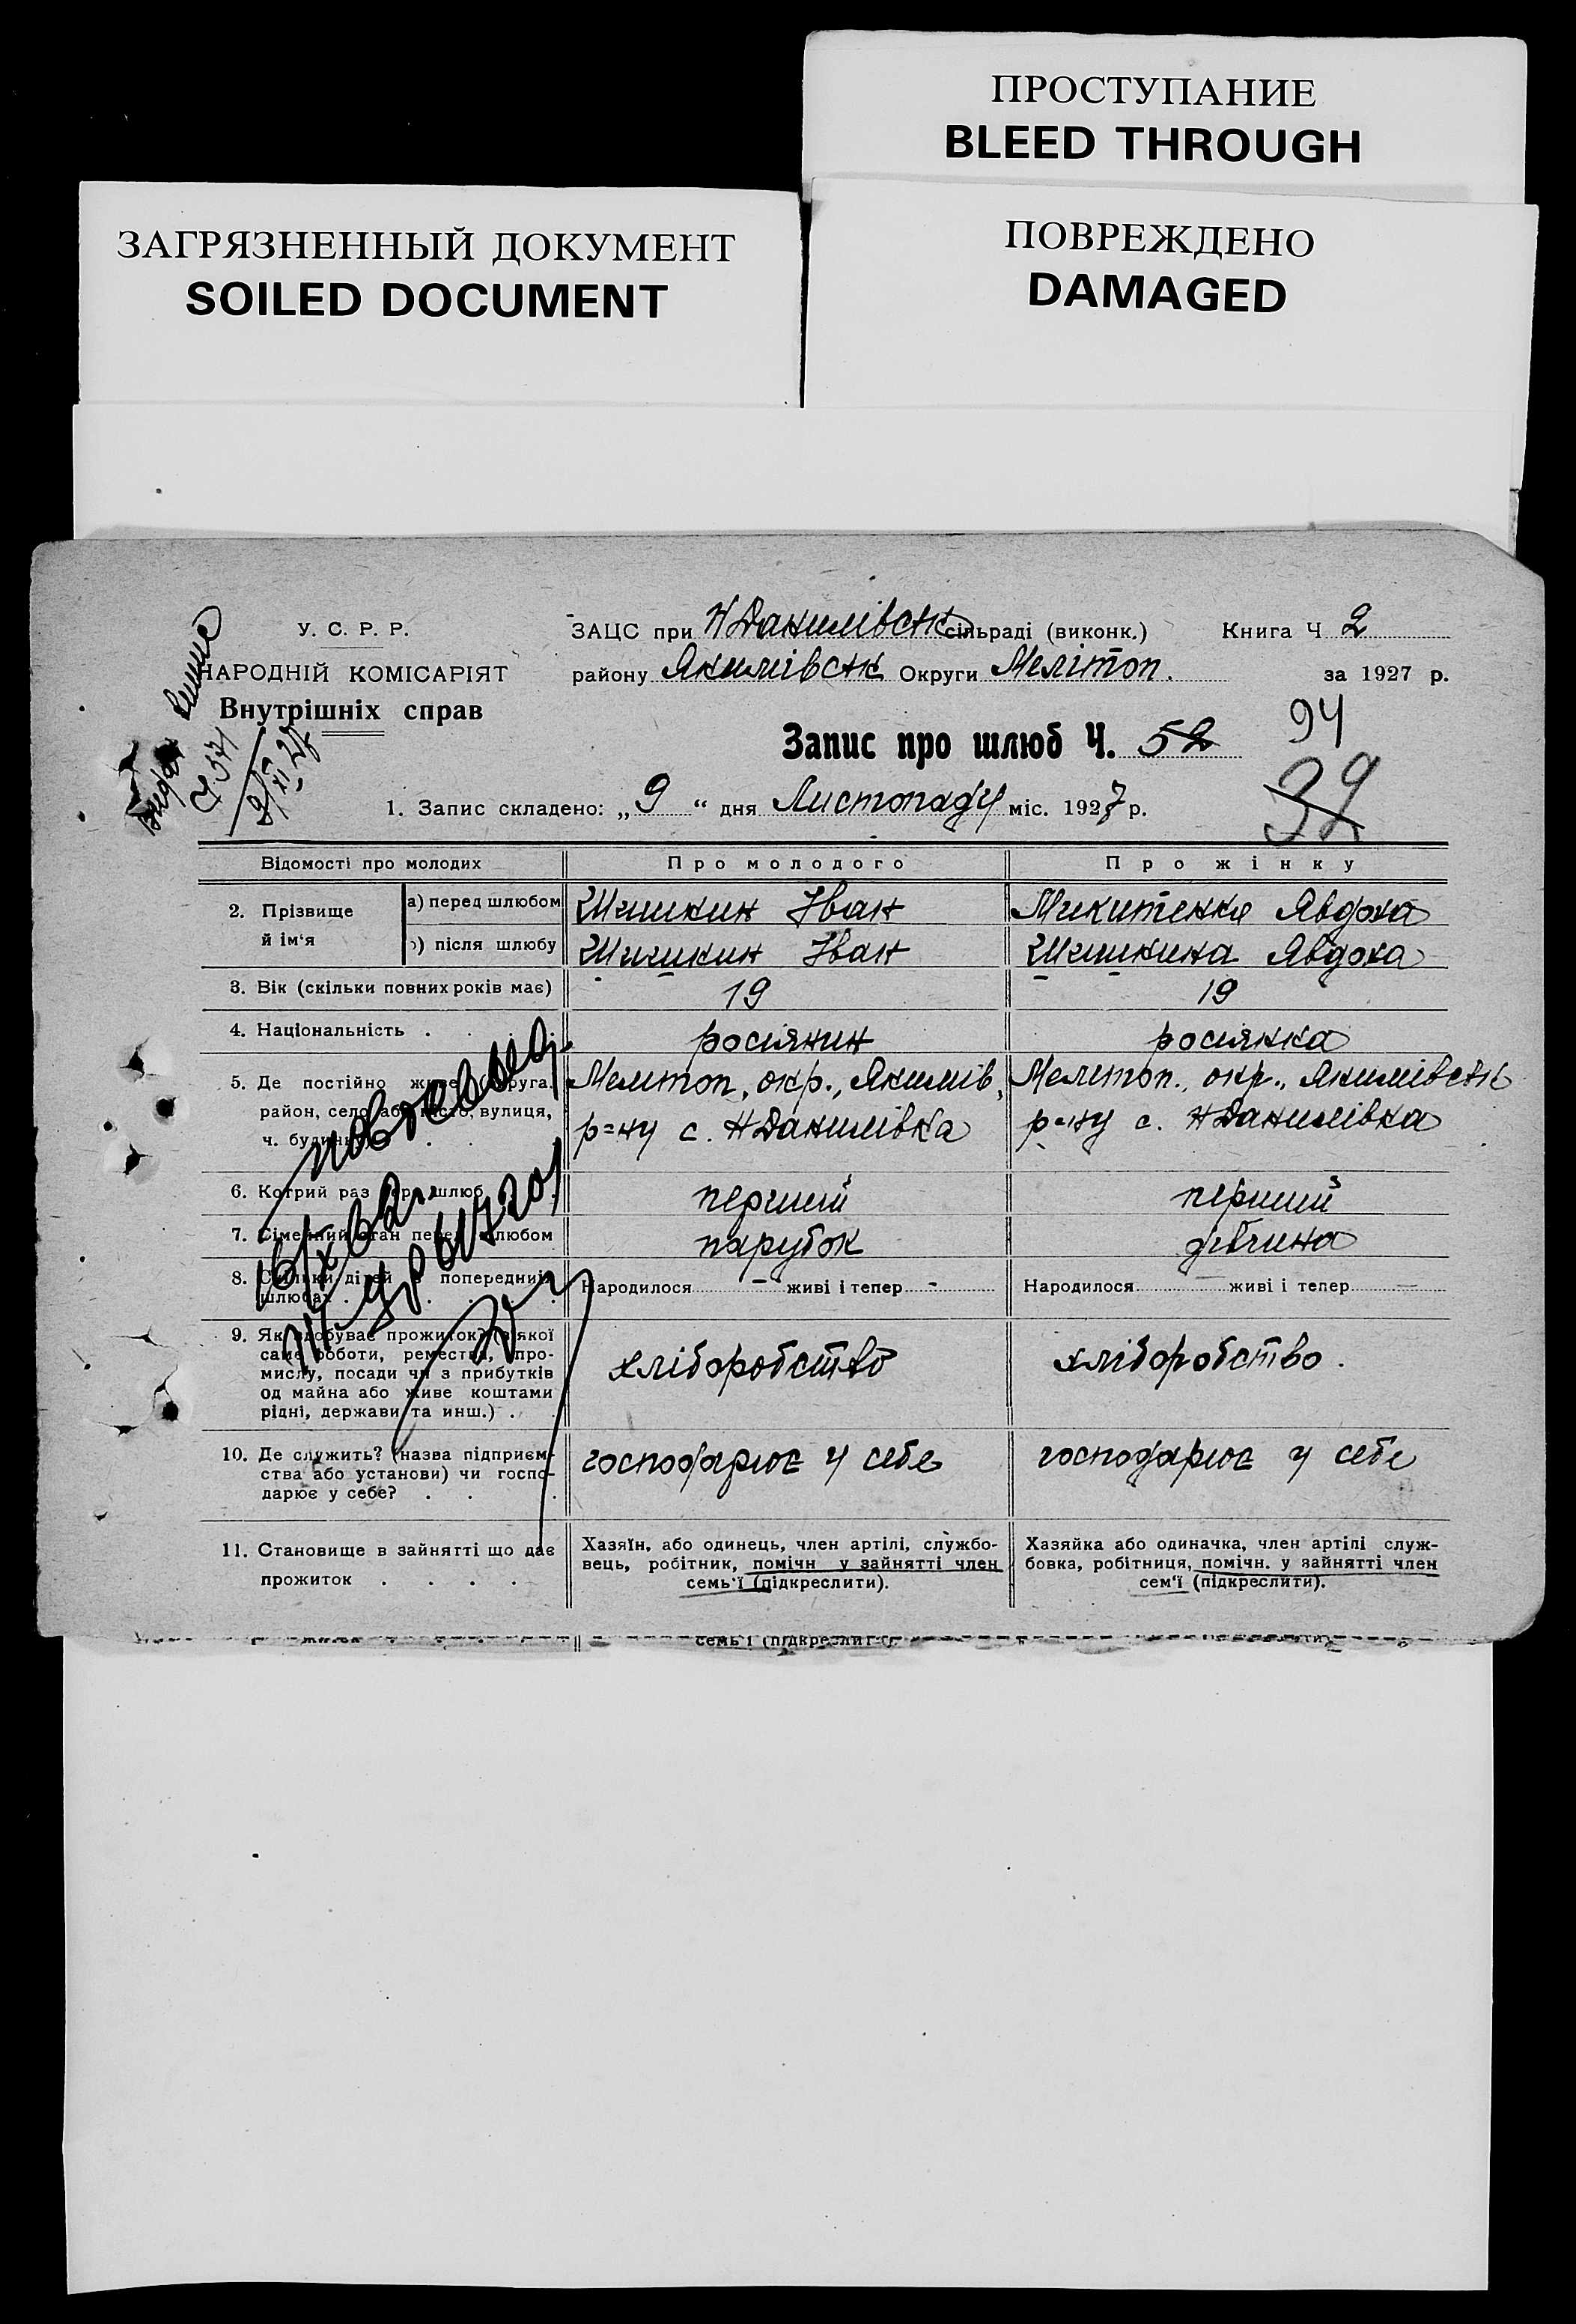 ПРОСТУПАНИЕ
BLEED THROUGH
ЗАГРЯЗНЕННЫЙ ДОКУМЕНТ
SOILED DOCUMENT
ПОВРЕЖДЕНО
DAMAGED
У. С. Р. Р.
НАРОДНІЙ КОМІСАРІЯТ
Внутрішніх справ
ЗАЦС при Н Данилівськ сільраді (виконк.) Книга Ч 2
району Якимівськ Округи Мелітоп. за 1927 р.
94
Запис про шлюб Ч. 52
39
1. Запис складено: „ 9 “ дня Листопаду міс. 1927 р.
Відомості про молодих Про молодого Про жінку
2. Прізвище й ім‘я
а) перед шлюбом Шишкин Іван Микитенко Явдоха
б) після шлюбу Шишкин Іван Шишкина Явдоха
3. Вік (скільки повних років має) 19 19
4. Національність . росіянин росіянка
5. Де постійно живе округа.
район, село або місто, вулиця,
ч. будинку
Мелитоп. окр., Якимів.
р=ну с. Н Данилівка
Мелитоп., окр., Якимівськ
р=ну с. Н Данилівка
6. Котрий раз бере шлюб перший перший
7. Сімейний стан перед шлюбом парубок дівчина
8. Скільки дітей в попередніх
шлюбах . Народилося — живі і тепер - Народилося — живі і тепер —
9. Як здобуває прожиток? (з якої
саме роботи, ремества, про-
мислу, посади чи з прибутків
од майна або живе коштами
рідні, держави та инш.) .
хліборобство
хліборобство.
10. Де служить? (назва підприєм-
ства або установи) чи госпо-
дарює у себе? . . .
господарює у себе
господарює у себе
11. Становище в зайнятті що дає
прожиток . . . .
Хазяїн, або одинець, член артілі, службо-
вець, робітник, помічн у зайнятті член
семь‘ї (підкреслити).
Хазяйка або одиначка, член артілі служ-
бовка, робітниця, помічн. у зайнятті член
сем‘ї (підкреслити).
семь‘ї (підкреслити)